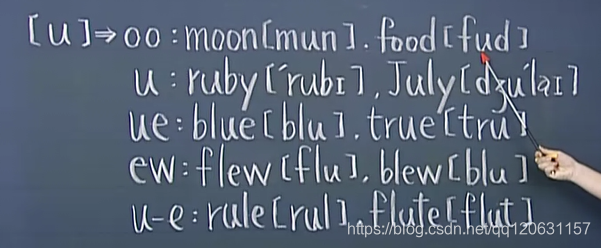 [u]⇒oo:moon[mun].food[fud]
u:ruby[ˊrubɪ],July[dʒuˊlaɪ]
ue:blue[blu].true[tru]
ew:flew[flu],blew[blu]
u-e:rule[rul].flute[flut]
https://blog.csdn.net/qq120631157